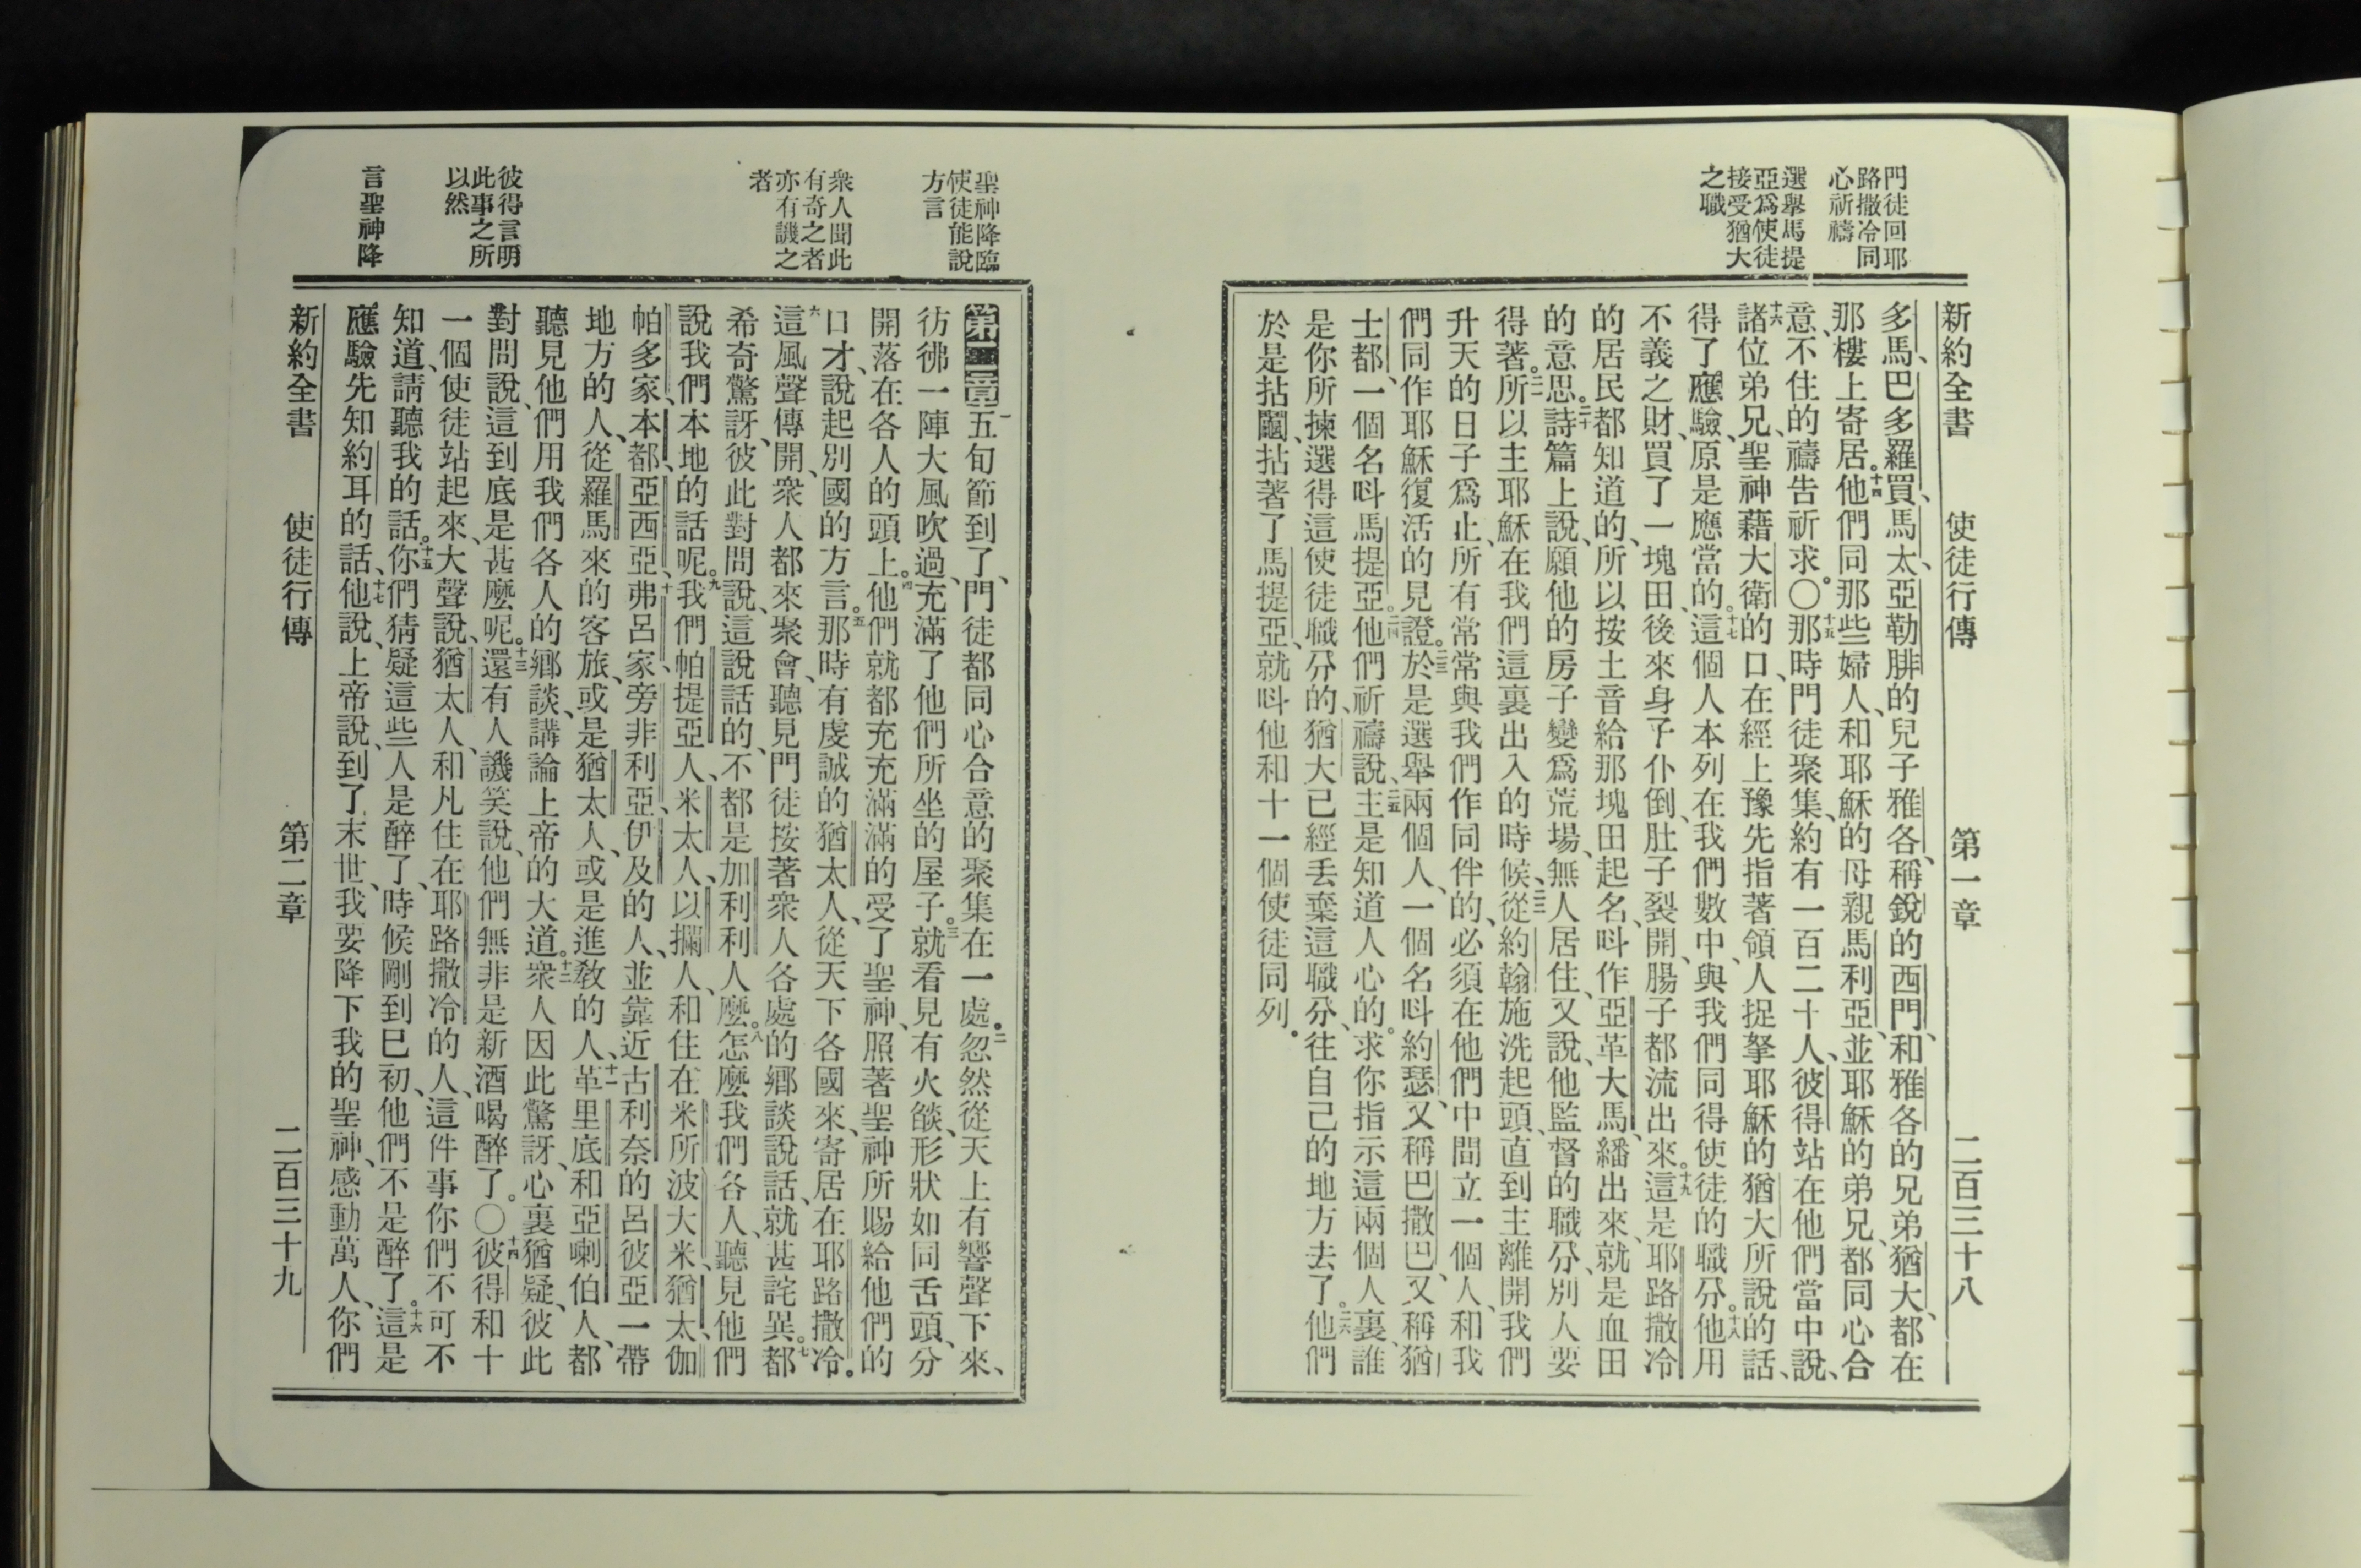 門徒回耶
路撒冷同
心祈禱
選舉馬提
亞爲使徒
接受猶大
之職
新約全書 使徒行傳 第一章 二百三十八
多馬、巴多羅買、馬太、亞勒腓的兒子雅各、稱銳的西門、和雅各的兄弟猶大、都在
那樓上寄居。十四他們同那些婦人、和耶穌的母親馬利亞、並耶穌的弟兄、都同心合
意、不住的禱告祈求。〇十五那時門徒聚集、約有一百二十人、彼得站在他們當中說、
十六諸位弟兄、聖神藉大衛的口、在經上豫先指著領人捉拏耶穌的猶大所說的話、
得了應驗、原是應當的。十七這個人本列在我們數中、與我們同得使徒的職分。十八他用
不義之財、買了一塊田、後來身子仆倒、肚子裂開、腸子都流出來。十九這是耶路撒冷
的居民都知道的、所以按土音給那塊田起名、呌作亞革大馬、繙出來、就是血田
的意思。二十詩篇上說、願他的房子變爲荒場、無人居住、又說、他監督的職分、別人要
得著。二一所以主耶穌在我們這裏出入的時候、二二從約翰施洗起頭、直到主離開我們
升天的日子爲止、所有常常與我們作同伴的、必須在他們中間立一個人、和我
們同作耶穌復活的見證。二三於是選舉兩個人、一個名呌約瑟、又稱巴撒巴、又稱猶
士都、一個名呌馬提亞。二四他們祈禱說、二五主是知道人心的。求你指示這兩個人裏、誰
是你所揀選得這使徒職分的、猶大已經丢棄這職分、往自己的地方去了。二六他們
於是拈鬮、拈著了馬提亞、就呌他和十一個使徒同列。
聖神降臨
使徒能說
方言
衆人聞此
有奇之者
亦有譏之
者
彼得言明
此事之所
以然
言聖神降
第二章一五旬節到了、門徒都同心合意的聚集在一處。二忽然從天上有響聲下來、
彷彿一陣大風吹過、充滿了他們所坐的屋子。三就看見有火燄、形狀如同舌頭、分
開落在各人的頭上。四他們就都充充滿滿的受了聖神、照著聖神所賜給他們的
口才、說起別國的方言。五那時有虔誠的猶太人、從天下各國來、寄居在耶路撒冷。
六這風聲傳開、衆人都來聚會、聽見門徒按著衆人各處的鄉談說話、就甚詫異。七都
希奇驚訝、彼此對問說、這說話的、不都是加利利人麼。八怎麼我們各人、聽見他們
說我們本地的話呢。九我們帕提亞人、米太人、以攔人、和住在米所波大米、猶太、伽
帕多家、本都、亞西亞、十弗呂家、旁非利亞、伊及的人、並靠近古利奈的呂彼亞一帶
地方的人、從羅馬來的客旅、或是猶太人、或是進敎的人、十一革里底和亞喇伯人、都
聽見他們用我們各人的鄉談、講論上帝的大道。十二衆人因此驚訝、心裏猶疑、彼此
對問說、這到底是甚麼呢。十三還有人譏笑說、他們無非是新酒喝醉了。〇十四彼得和十
一個使徒站起來、大聲說、猶太人、和凡住在耶路撒冷的人、這件事你們不可不
知道、請聽我的話。十五你們猜疑這些人是醉了、時候剛到巳初、他們不是醉了。十六這是
應驗先知約耳的話、十七他說、上帝說、到了末世、我要降下我的聖神、感動萬人、你們
新約全書 使徒行傳 第二章 二百三十九